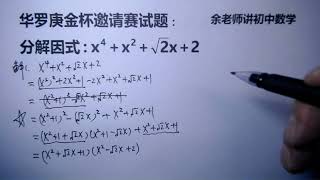 华罗庚金杯邀请赛试题：
余老师讲初中数学
分解因式：x⁴+x²+√2x+2
解：x⁴+x²+√2x+2
=(x²)²+2x²+1-2x²+x²+√2x+1
=(x²+1)²-(√2x)²+x²+√2x+1
=(x²+1)²-(√2x)²+x²+√2x+1
=(x²+1+√2x)(x²+1-√2x)+x²+√2x+1
=(x²+√2x+1)(x²-√2x+2)